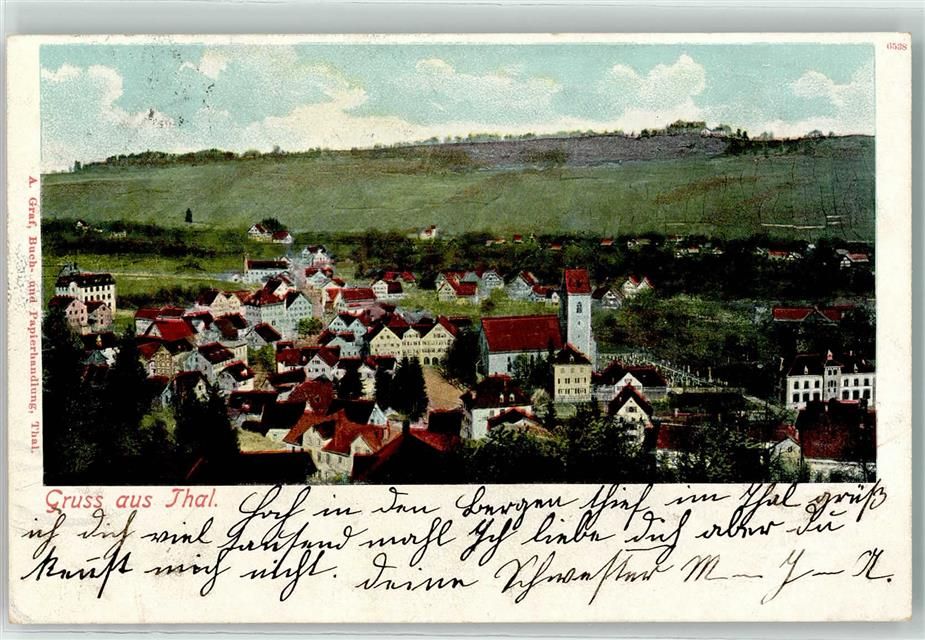 6538
A. Graf, Buch- und Papierhandlung, Thal.
Gruss aus Thal. Hoch in den Bergen thief im Thal grüß
ich dich viel Tausend mahl Ich liebe dich aber du
kenst mich nicht. deine Schwester M– J– N.